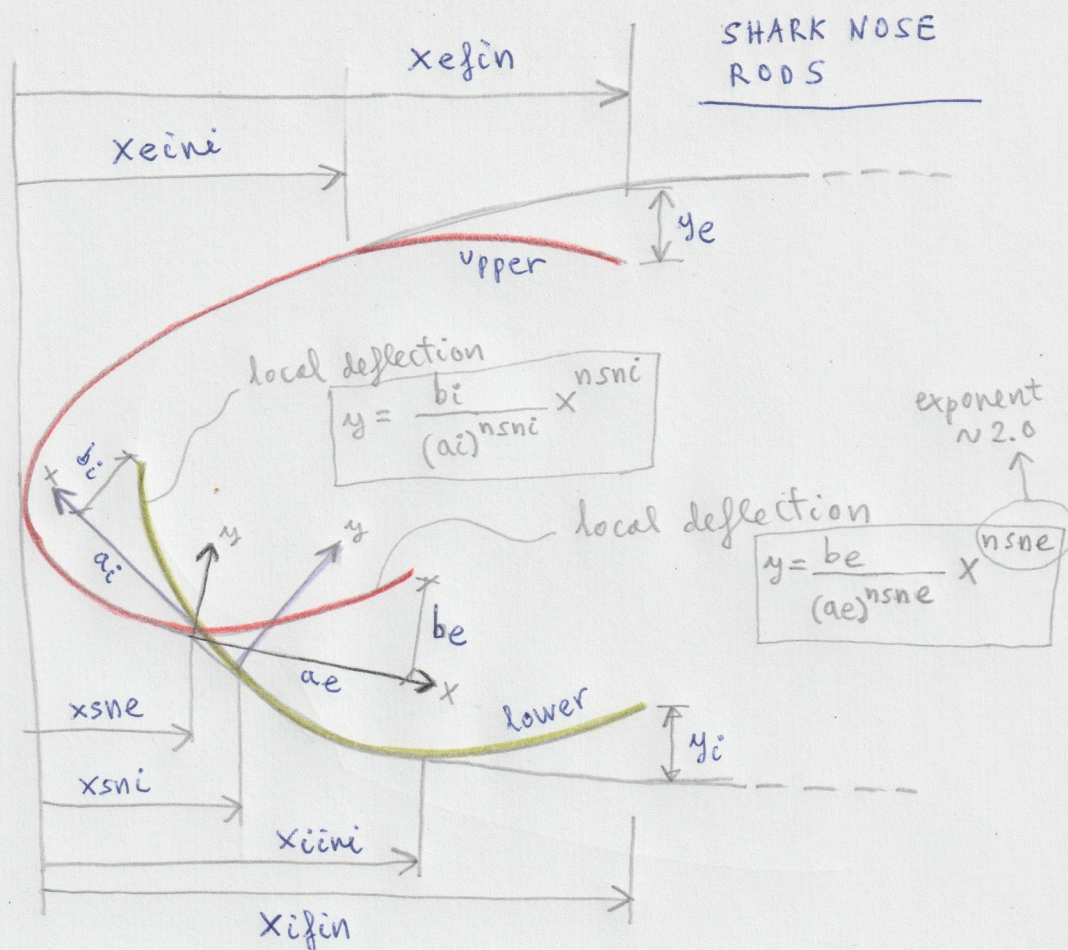 SHARK NOSE
RODS
xefin
xeini
ye
upper
local deflection
y = bi / (ai)^nsni x^nsni
exponent
~ 2.0
x
bi
ai
y
y
local deflection
y = be / (ae)^nsne x^nsne
be
ae
x
xsne
lower
yi
xsni
xiini
xifin